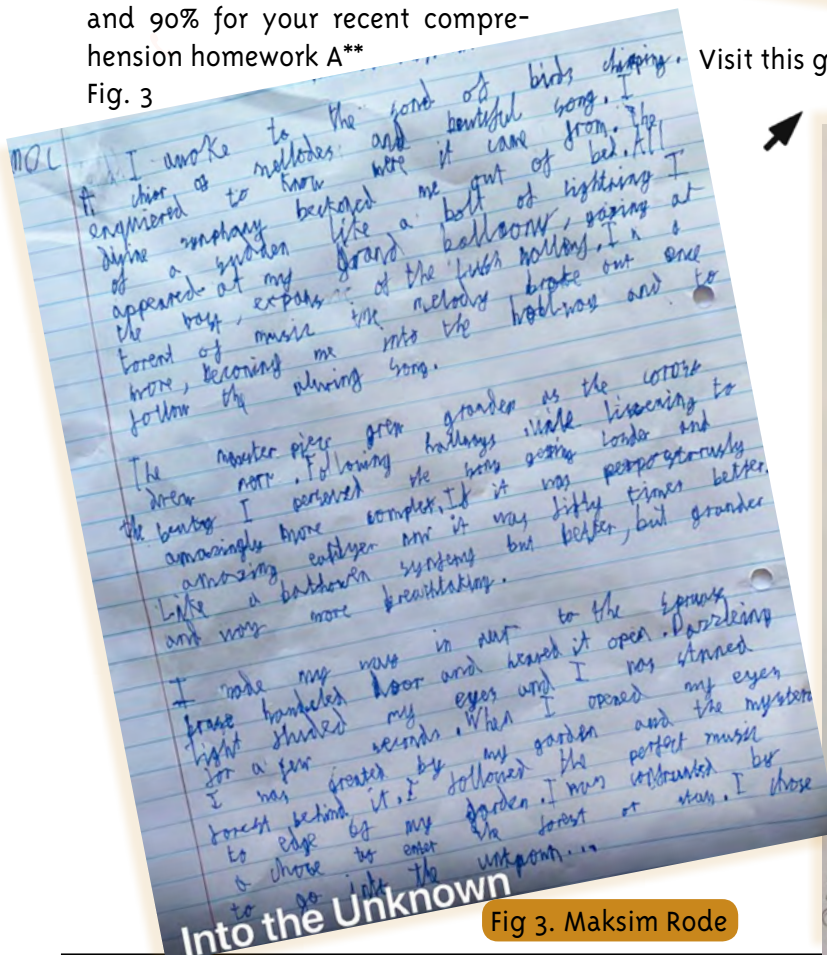 and 90% for your recent compre-
hension homework A**
Fig. 3
Visit this g
I awoke to the sond of birds chirping.
A chior of mellodes and beutiful song. I
enquiered to know were it came from. The
divine symphany beckoned me out of bed. All
of a sudden like a bolt of lightning I
appeared at my grand balloony, gazing at
the vast, of the lush valley. In a
torent of music the melody broke out once
more, beconing me into the hallway and to
follow the aluring song.
The master piece grew grander as the
drew . Following hallways while lissening to
the beuty I perseved the song geting louder and
amazingly more complex. If it was
amazing it was fifty times better.
Like a but better, but grander
and way more breathtaking.
I made my way in to the
handeled door and heaved it open. Dazzleing
light my eyes and I was stnned
for a few seconds. When I opened my eyes
I was greated by my garden and the
forest behind it. I followed the perfect music
to edge of my garden. I was by
a chose to enter the forest or stay. I chose
to go into the unknown...
Into the Unknown
Fig 3. Maksim Rode